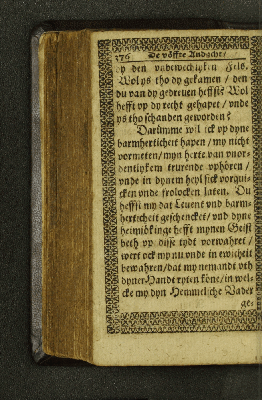 376 De vöffte Andacht/
vp den vnbewechlyken Fels.
Wol ys tho dy gekamen / den
du van dy gedreuen heffst? Wol
hefft vp dy recht gehapet / vnde
ys tho schanden geworden?
Darümme wil ick vp dyne
barmherticheit hapen / my nicht
vormeten / myn herte van vnor-
dentlykem trurende vphören /
vnde in dynem heyl sick vorquic-
cken vnde frolocken laten. Du
heffst my dat Leuent vnd barm-
herticheit geschencket / vnd dyne
heimsökinge hefft mynen Geist
beth vp disse tydt vorwahret /
wert ock my nu vnde in ewicheit
bewahren / dat my nemandt vth
dyner Handt ryten köne / in wel-
cke my dyn Hemmelsche Vader
ge-